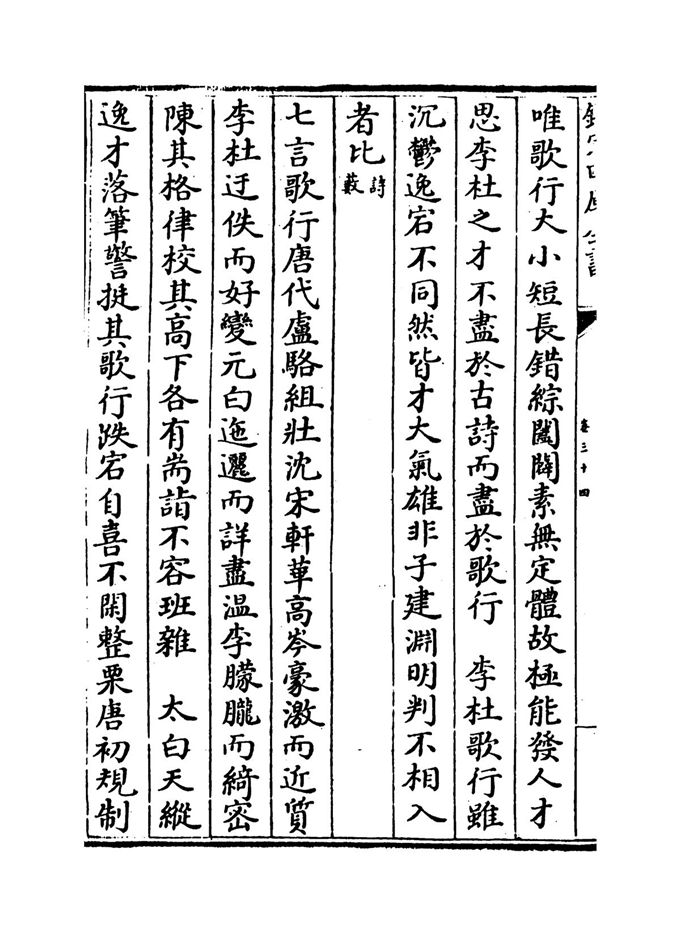 唯歌行大小短長錯綜闔闢素無定體故極能發人才
思李杜之才不盡於古詩而盡於歌行　李杜歌行雖
沉鬱逸宕不同然皆才大氣雄非子建淵明判不相入
者比詩藪
七言歌行唐代盧駱組壯沈宋軒華高岑豪激而近質
李杜迂佚而好變元白迤邐而詳盡溫李朦朧而綺密
陳其格律校其高下各有耑詣不容班雜　太白天縱
逸才落筆警挺其歌行跌宕自喜不閑整栗唐初規制
卷三十四